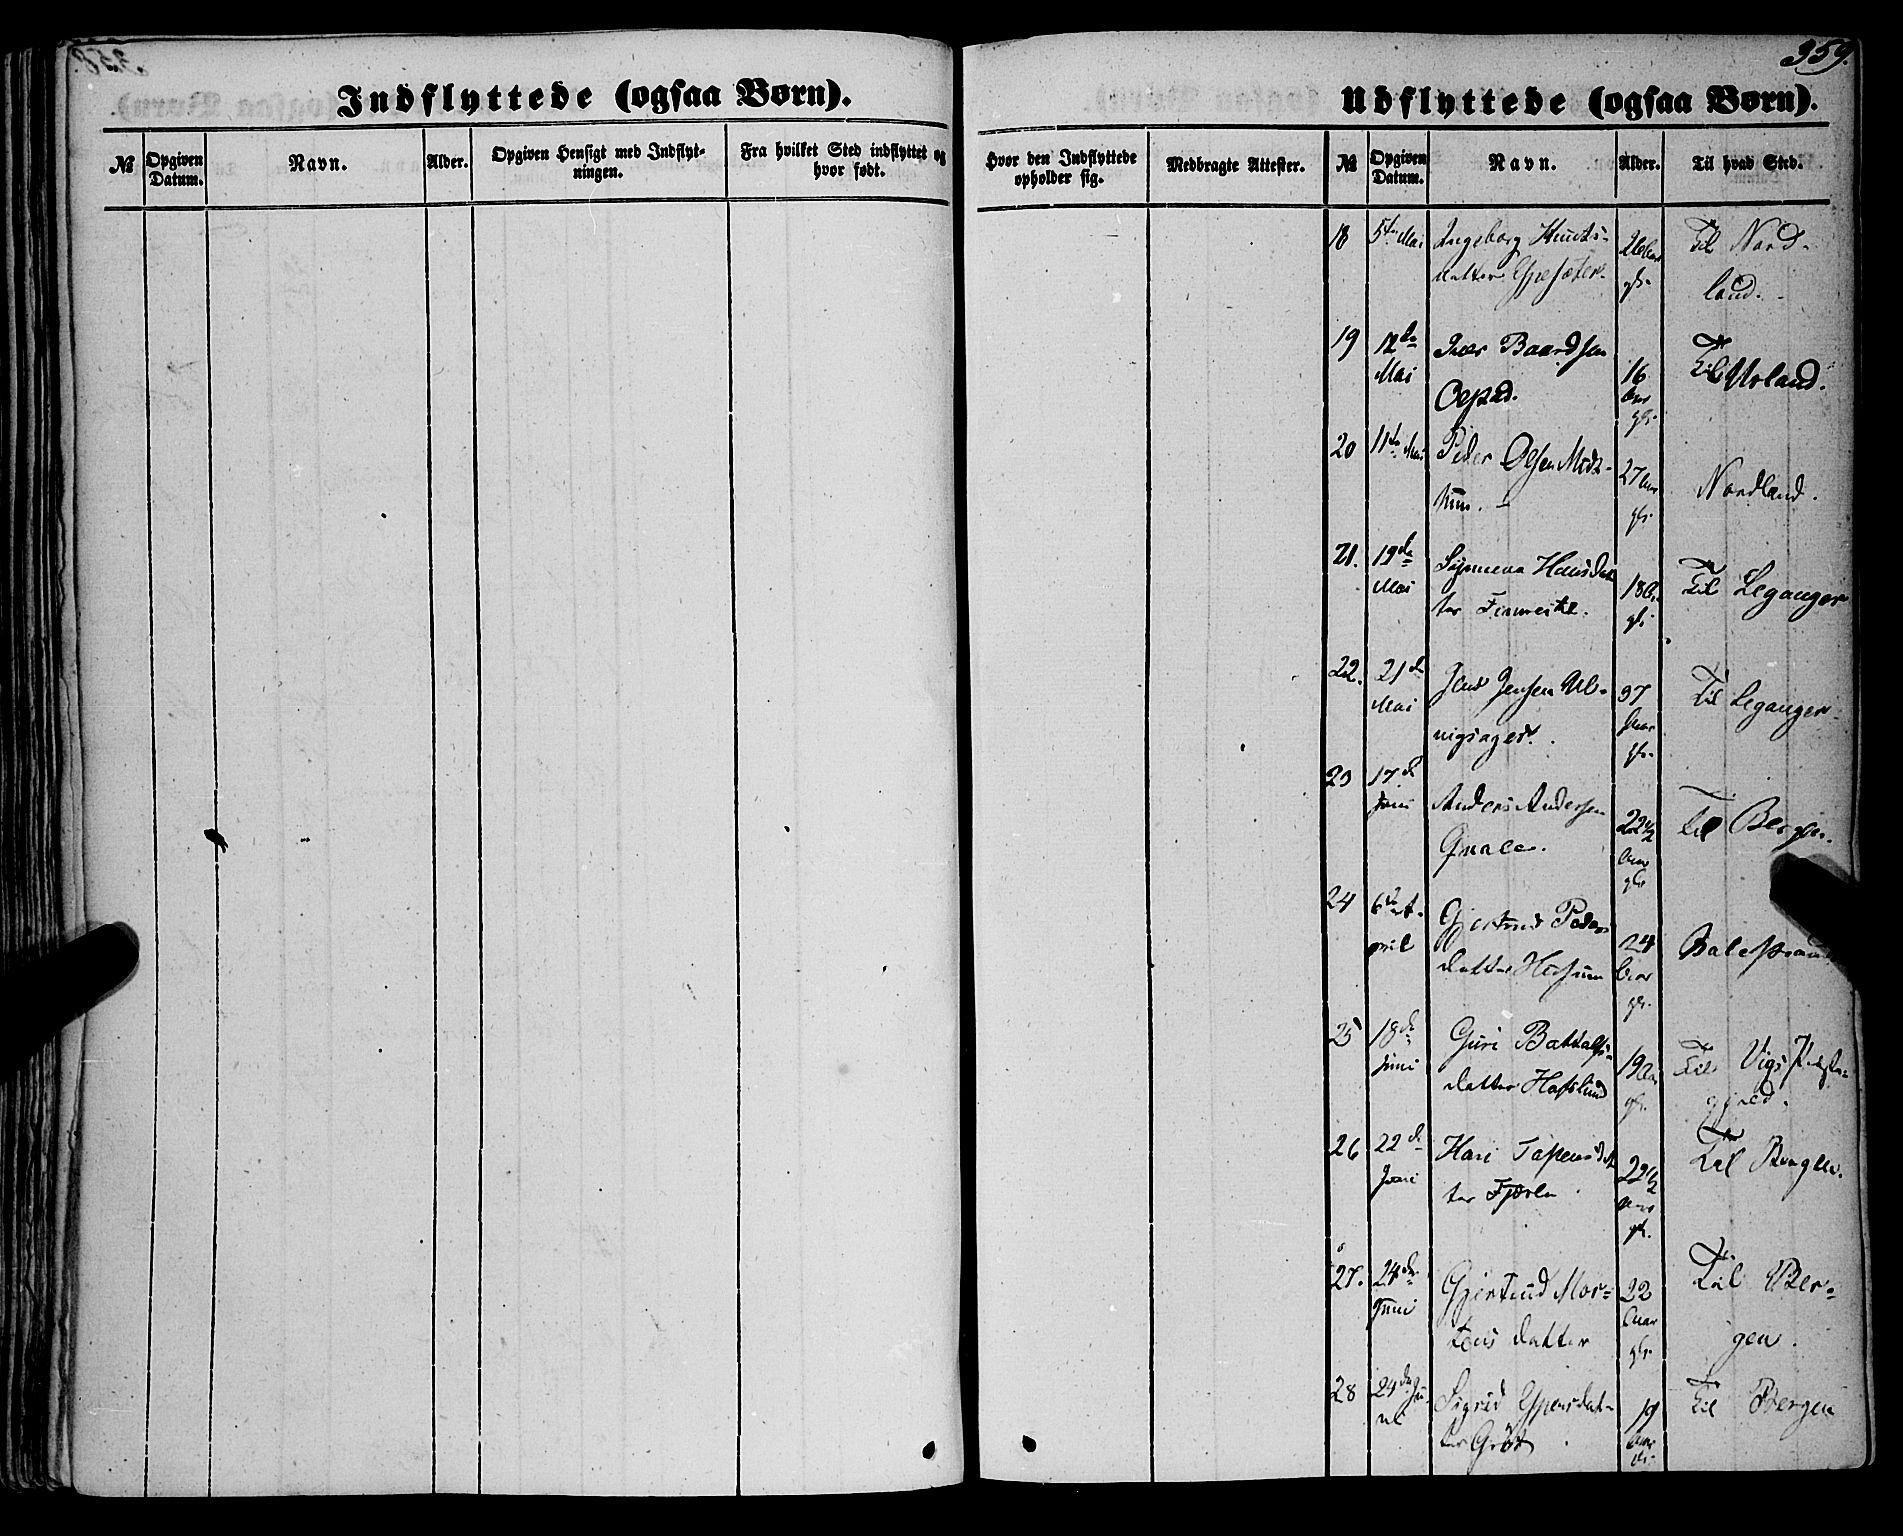 359.
Indflyttede (ogsaa Børn).
Udflyttede (ogsaa Børn).
№
Opgiven Datum.
Navn.
Alder.
Opgiven Hensigt med Indflyt-
ningen.
Fra hvilket Sted indflyttet og
hvor født.
Hvor den Indflyttede
opholder sig.
Medbragte Attester.
№
Opgiven Datum.
Navn.
Alder.
Til hvad Sted.
18 5te Mai Ingeborg Knuts- 26 Til Nord-
datter land.
19 12te Mai Iver Baardsen 16 Aar gl. Til Urland.
20 11te Mai Peder Olsen 27 Aar gl. Nordland.
21. 19de Mai Synneva Hansdat 18 gl. Til Leganger
ter
22. 21de Mai Jens Jensen 37 Aar gl. Til Leganger
23 17de Juni Anders Andersen 22½ Aar gl. Til Bergen.
24 6te April Gjertrud Peders 24 Aar gl. Balestrand
datter
25 18de Juni Guri 19 Aar gl. Til Vigs Præste-
datter Hafslund gjeld.
26 22de Juni Kari 22½ Aar gl. Til Bergen.
ter Fjærlen
27. 24de Juni Gjertrud Mor- 22 Aar gl. Til Ber-
tens datter gen.
28 24de Ju- Sigrid Espensdat- 19 Aar gl. Til Bergen
ni ter